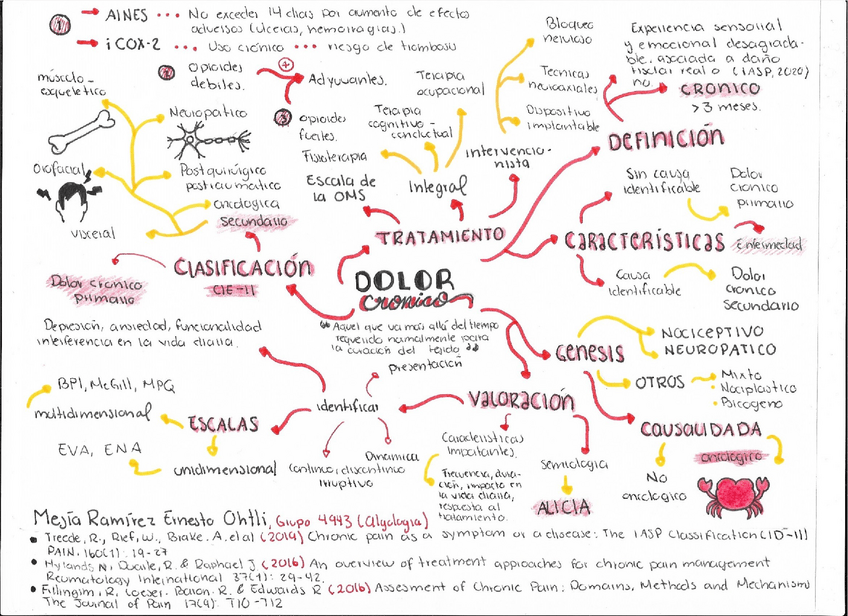 1 → AINES ••• No exceder 14 días por aumento de efectos
adversos (úlceras, hemorragias.)
→ iCOX-2 ••• Uso crónico ••• riesgo de trombosis
2 opioides
débiles.
+
Adyuvantes.
3 opioides
fuertes.
Terapia
ocupacional
Terapia
cognitivo-
conductual
Fisioterapia
Integral
Escala de
la OMS
Intervencio-
nista
Bloqueo
nervioso
Técnicas
neuroaxiales
Dispositivo
implantable
TRATAMIENTO
Experiencia sensorial
y emocional desagrada-
ble. asociada a daño
tisular real o (IASP, 2020)
no
CRÓNICO
>3 meses.
DEFINICIÓN
Sin causa
identificable
Dolor
crónico
primario
CARACTERÍSTICAS
Enfermedad
Causa
identificable
Dolor
crónico
secundario
músculo-
esquelético
Neuropático
Orofacial
Postquirúrgico
postraumático
oncológico
secundario
visceral
CLASIFICACIÓN
CIE-11
Dolor crónico
primario
DOLOR
crónico
"Aquel que va más allá del tiempo
requerido normalmente para
la curación del tejido"
GENESIS
NOCICEPTIVO
NEUROPATICO
OTROS
Mixto
Nociplástico
Psicógeno
CAUSALIDADA
oncológico
No
oncológico
Depresión, ansiedad, funcionalidad
interferencia en la vida diaria.
presentación
identificar
VALORACIÓN
BPI, McGill, MPQ
multidimensional
ESCALAS
EVA, ENA
unidimensional
Continuo, discontinuo
irruptivo
Dinámica
Características
importantes.
Frecuencia, dura-
ción, impacto en
la vida diaria,
respuesta al
tratamiento.
Semiología
ALICIA
Mejía Ramírez Ernesto Ohtli, Grupo 4943 (Algología)
• Treede, R., Rief, W., Barke. A. et al (2019) Chronic pain as a symptom or a disease: The IASP Classification (ICD-11)
PAIN. 160(1): 19-27
• Hylands N, Dware, R. & Raphael J. (2016) An overview of treatment approaches for chronic pain management
Reumatology International 37(1): 29-42.
• Fillingim, R, Loeser. Baron. R. & Edwards R (2016) Assesment of Chronic Pain: Domains, Methods and Mechanism
The Journal of Pain 17(9): T10-T12